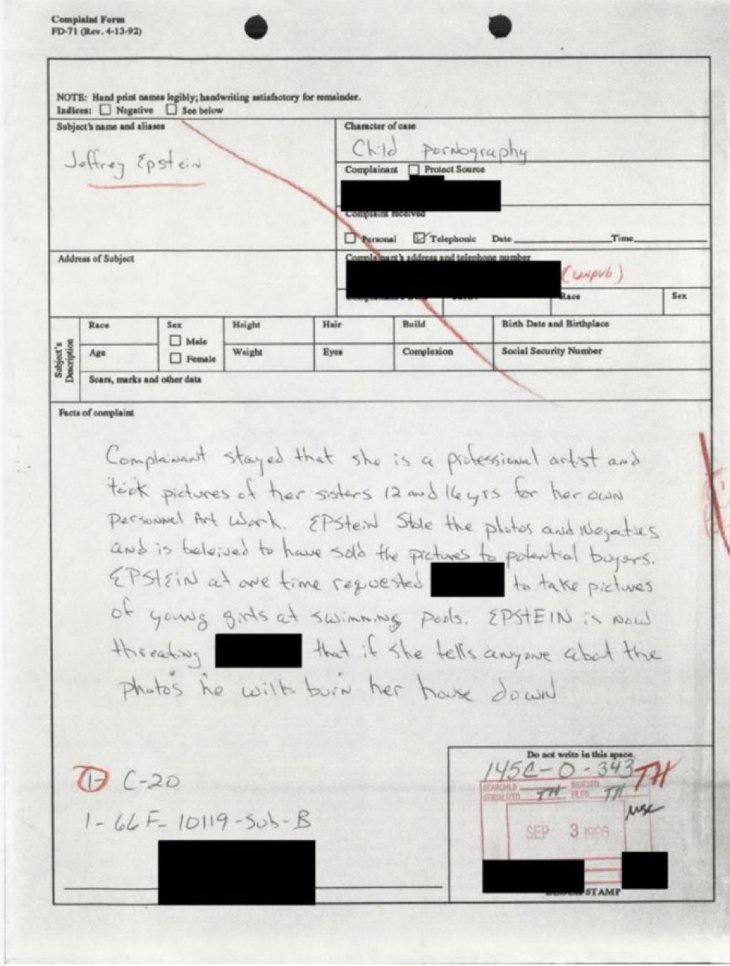 Complaint Form
FD-71 (Rev. 4-13-92)
NOTE: Hand print names legibly; handwriting satisfactory for remainder.
Indices: Negative See below
Subject's name and aliases
Jeffrey Epstein
Character of case
Child pornography
Complainant Protect Source
Complaint received
Personal Telephonic Date Time
Address of Subject
Complainant's address and telephone number
(unpub)
Race Sex
Subject's Description
Race Sex Height Hair Build Birth Date and Birthplace
Male
Age Female Weight Eyes Complexion Social Security Number
Scars, marks and other data
Facts of complaint
Complainant stayed that she is a professional artist and
took pictures of her sisters 12 and 16 yrs for her own
personnel Art Work. EPStein Stole the photos and Negatives
and is beleived to have sold the pictures to potential buyers.
EPSTEIN at one time requested to take pictures
of young girls at swimming pools. EPSTEIN is now
threating that if she tells anyone about the
photos he will burn her house down
1- C-20
1-66F-10119-Sub-B
Do not write in this space.
145C-0-343 TH
SEARCHED INDEXED
SERIALIZED TH FILED TH
SEP 3 1996
STAMP